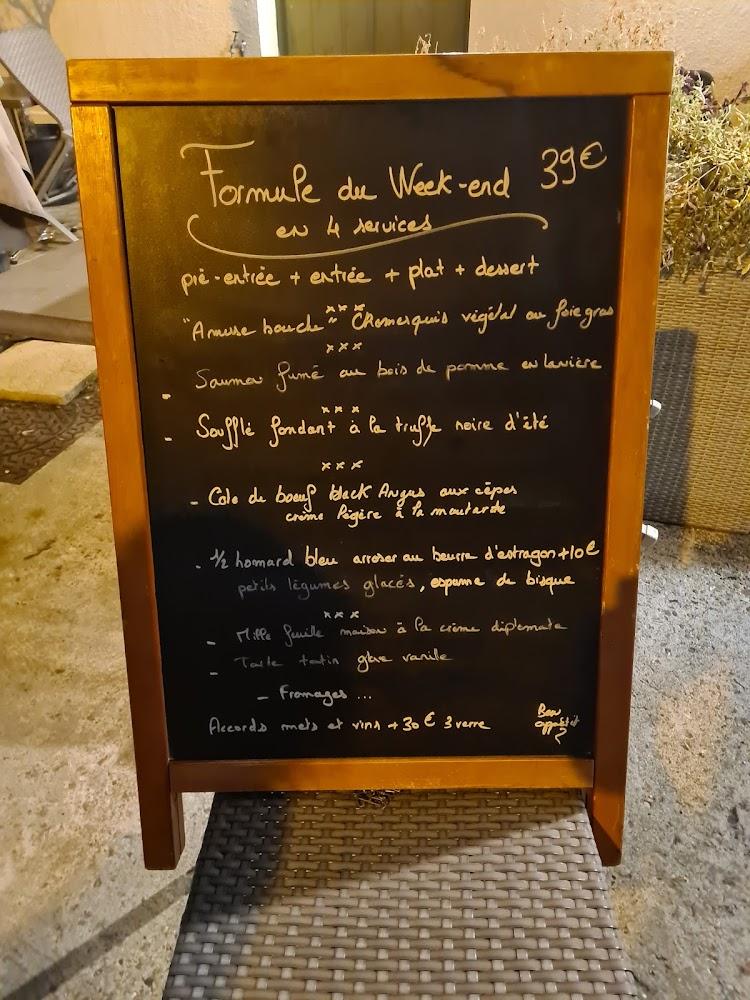 Formule du Week-end 39€
en 4 services
pré-entrée + entrée + plat + dessert
xxx
"Amuse bouche" Chomesquis végétal au foie gras
xxx
- Saumon fumé au bois de pomme en lanière
xxx
- Soufflé fondant à la truffe noire d'été
xxx
- Cote de boeuf black Angus aux cèpes
crème légère à la moutarde
- 1/2 homard bleu arroser au beurre d'estragon +10€
petits légumes glacés, espuma de bisque
xxx
- Mille feuille maison à la crème diplomate
- Tarte tatin glace vanille
- Fromages ...
Accords mets et vins +30€ 3 verre
Bon
appétit